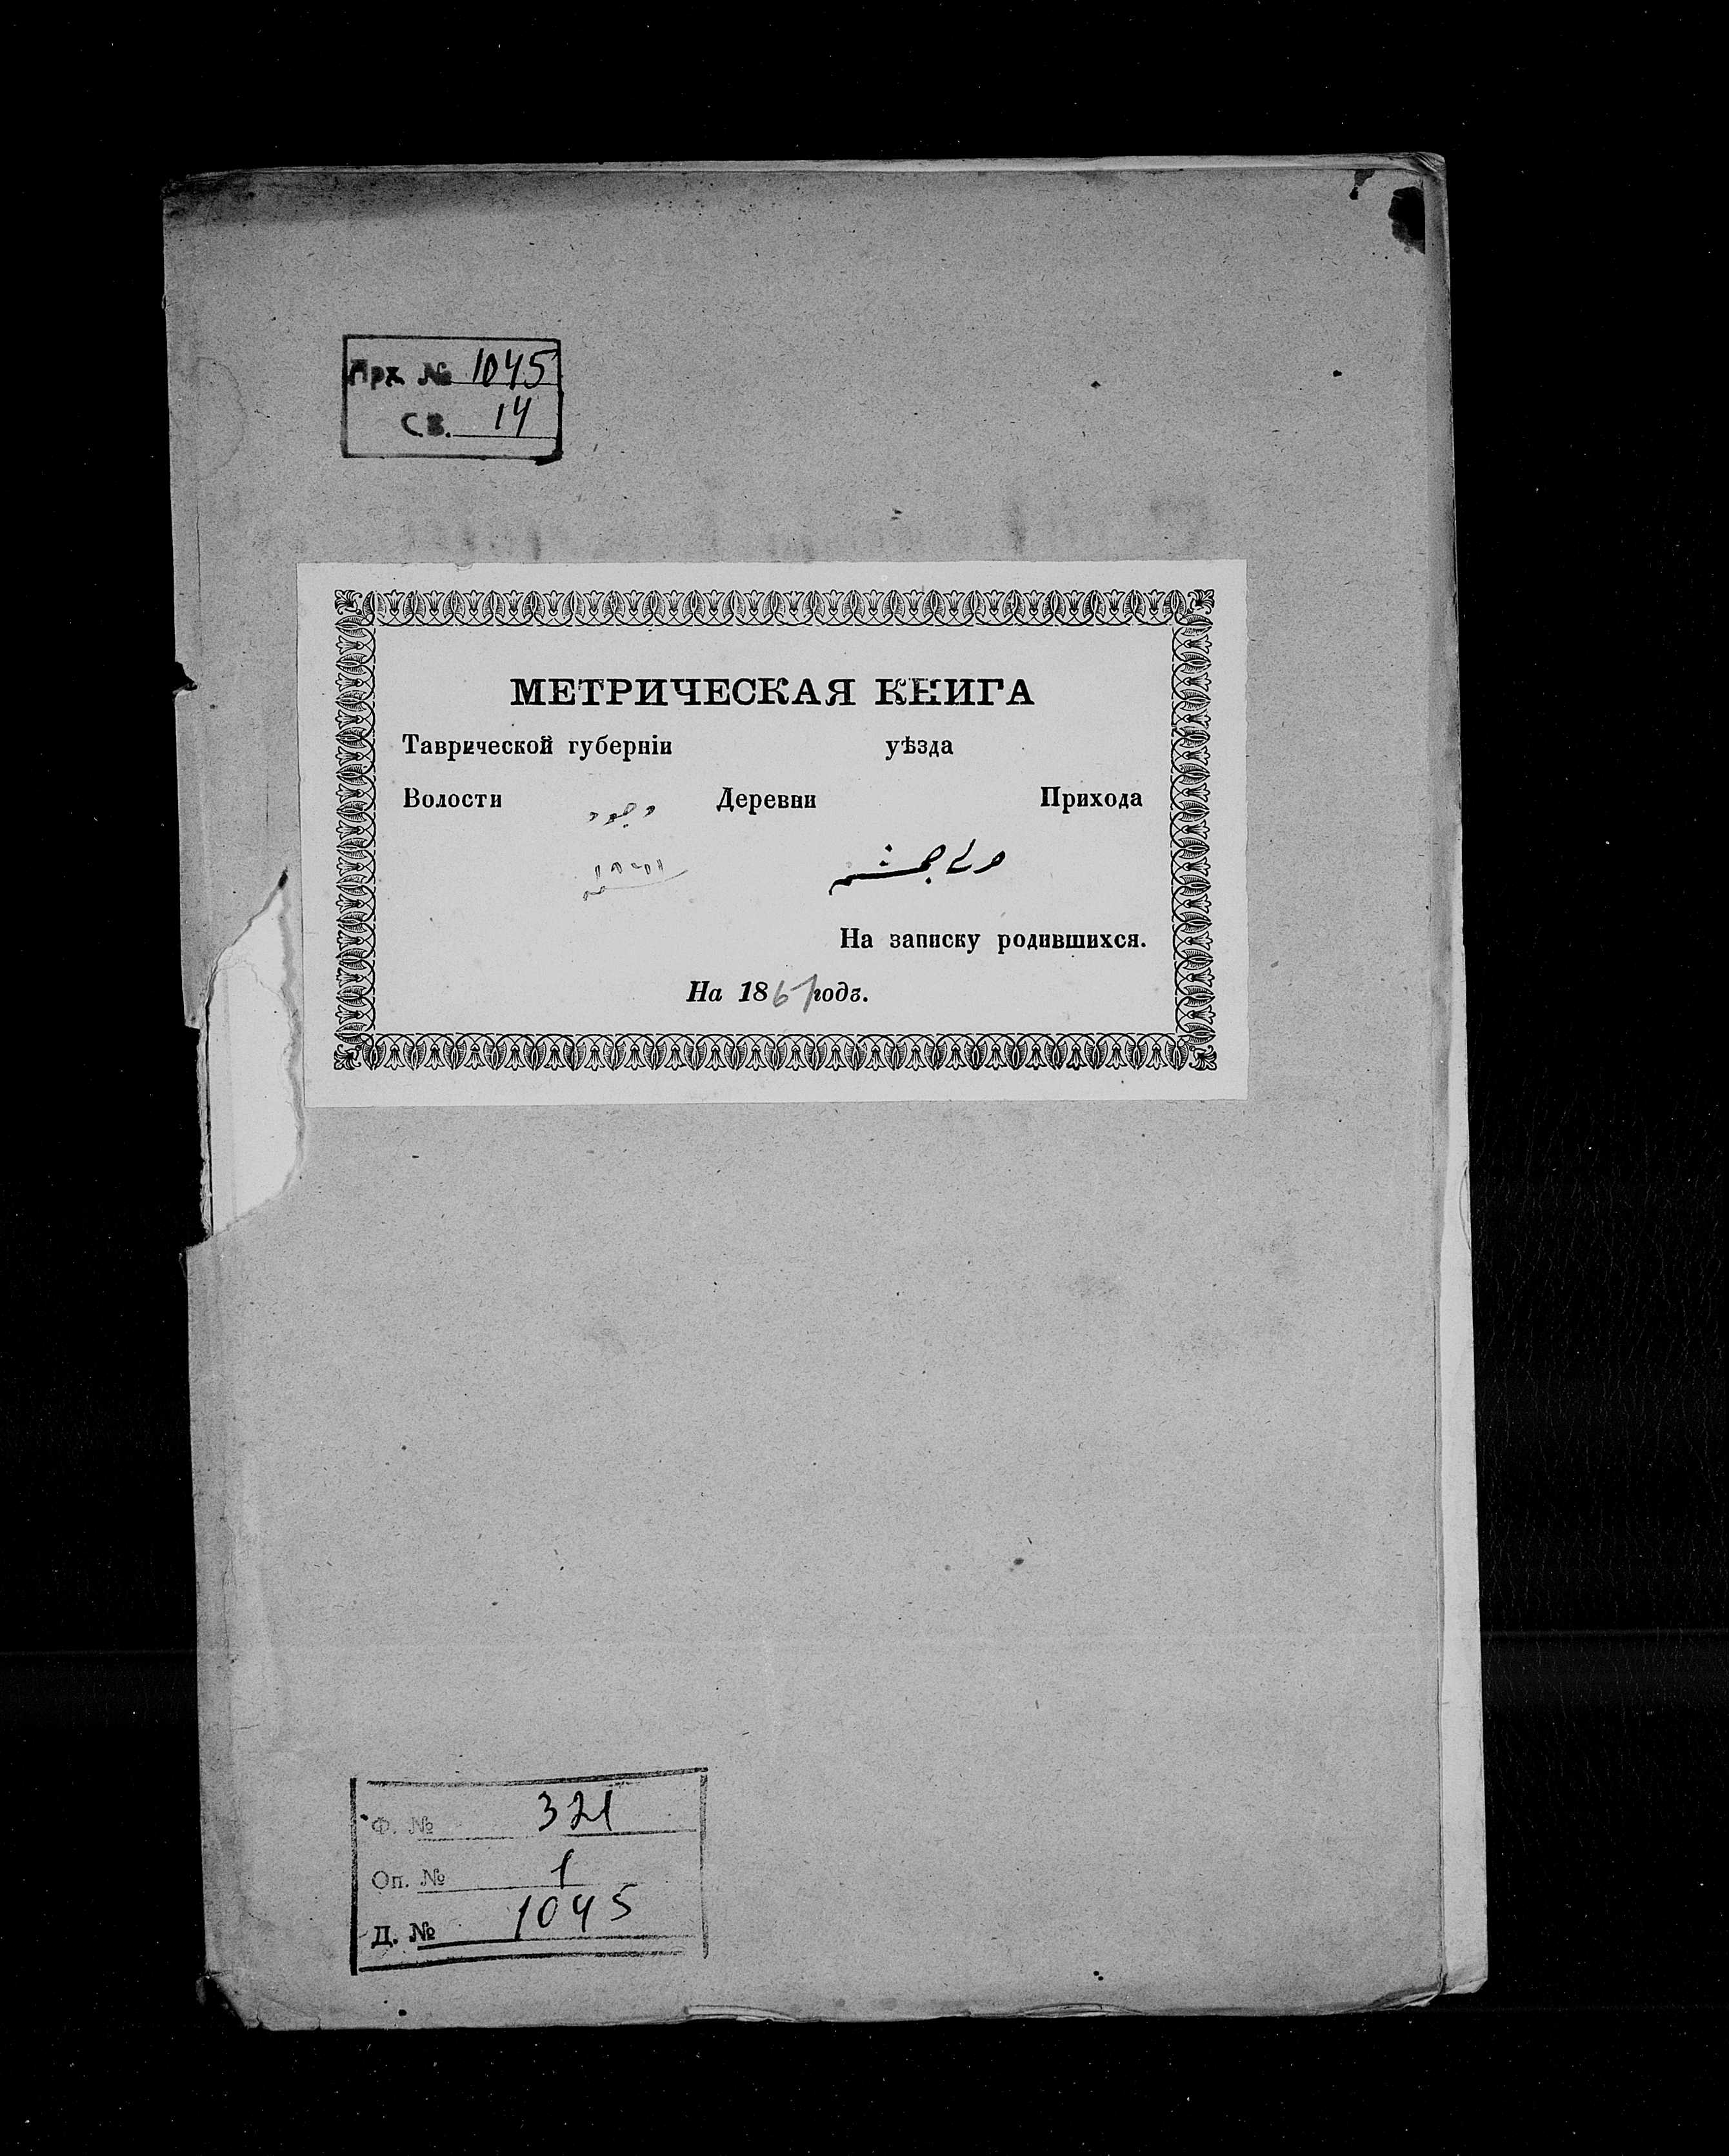 Арх. № 1045
СВ. 14
МЕТРИЧЕСКАЯ КНИГА
Таврической губерніи уѣзда
Волости Деревни Прихода
На записку родившихся.
На 1861 годъ.
Ф. № 321
Оп. № 1
Д. № 1045